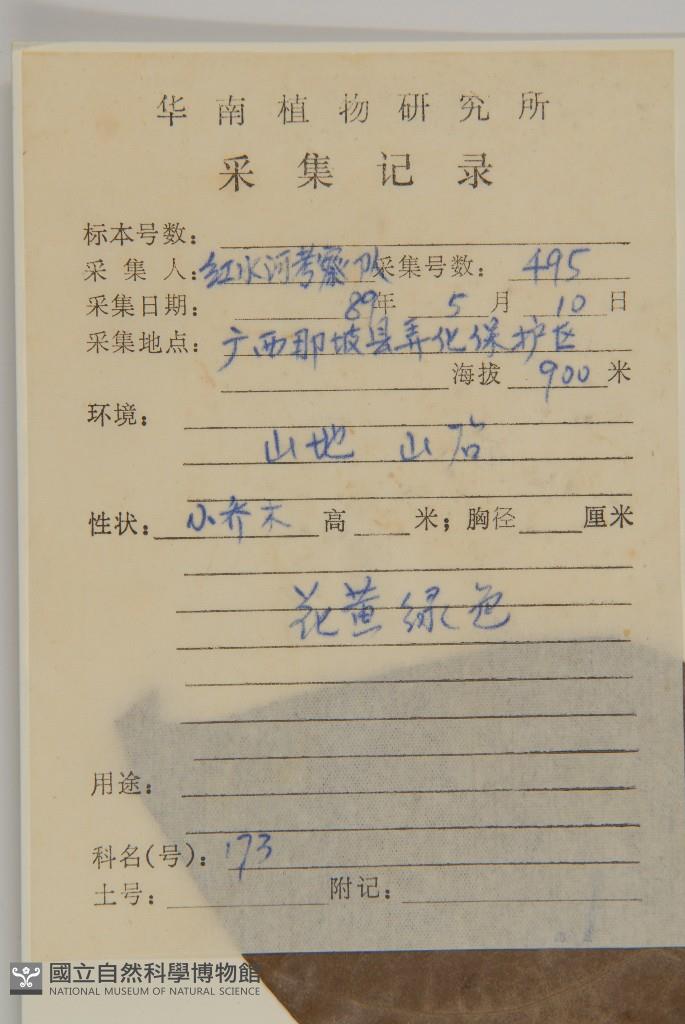 华南植物研究所
采集记录
标本号数：
采集人：红水河考察队 采集号数：495
采集日期：89年 5月 10日
采集地点：广西那坡县弄化保护区
海拔 900 米
环境：
山地 山石
性状：小乔木 高 米；胸径 厘米
花黄绿色
用途：
科名(号)：173
土号： 附记：
國立自然科學博物館
NATIONAL MUSEUM OF NATURAL SCIENCE